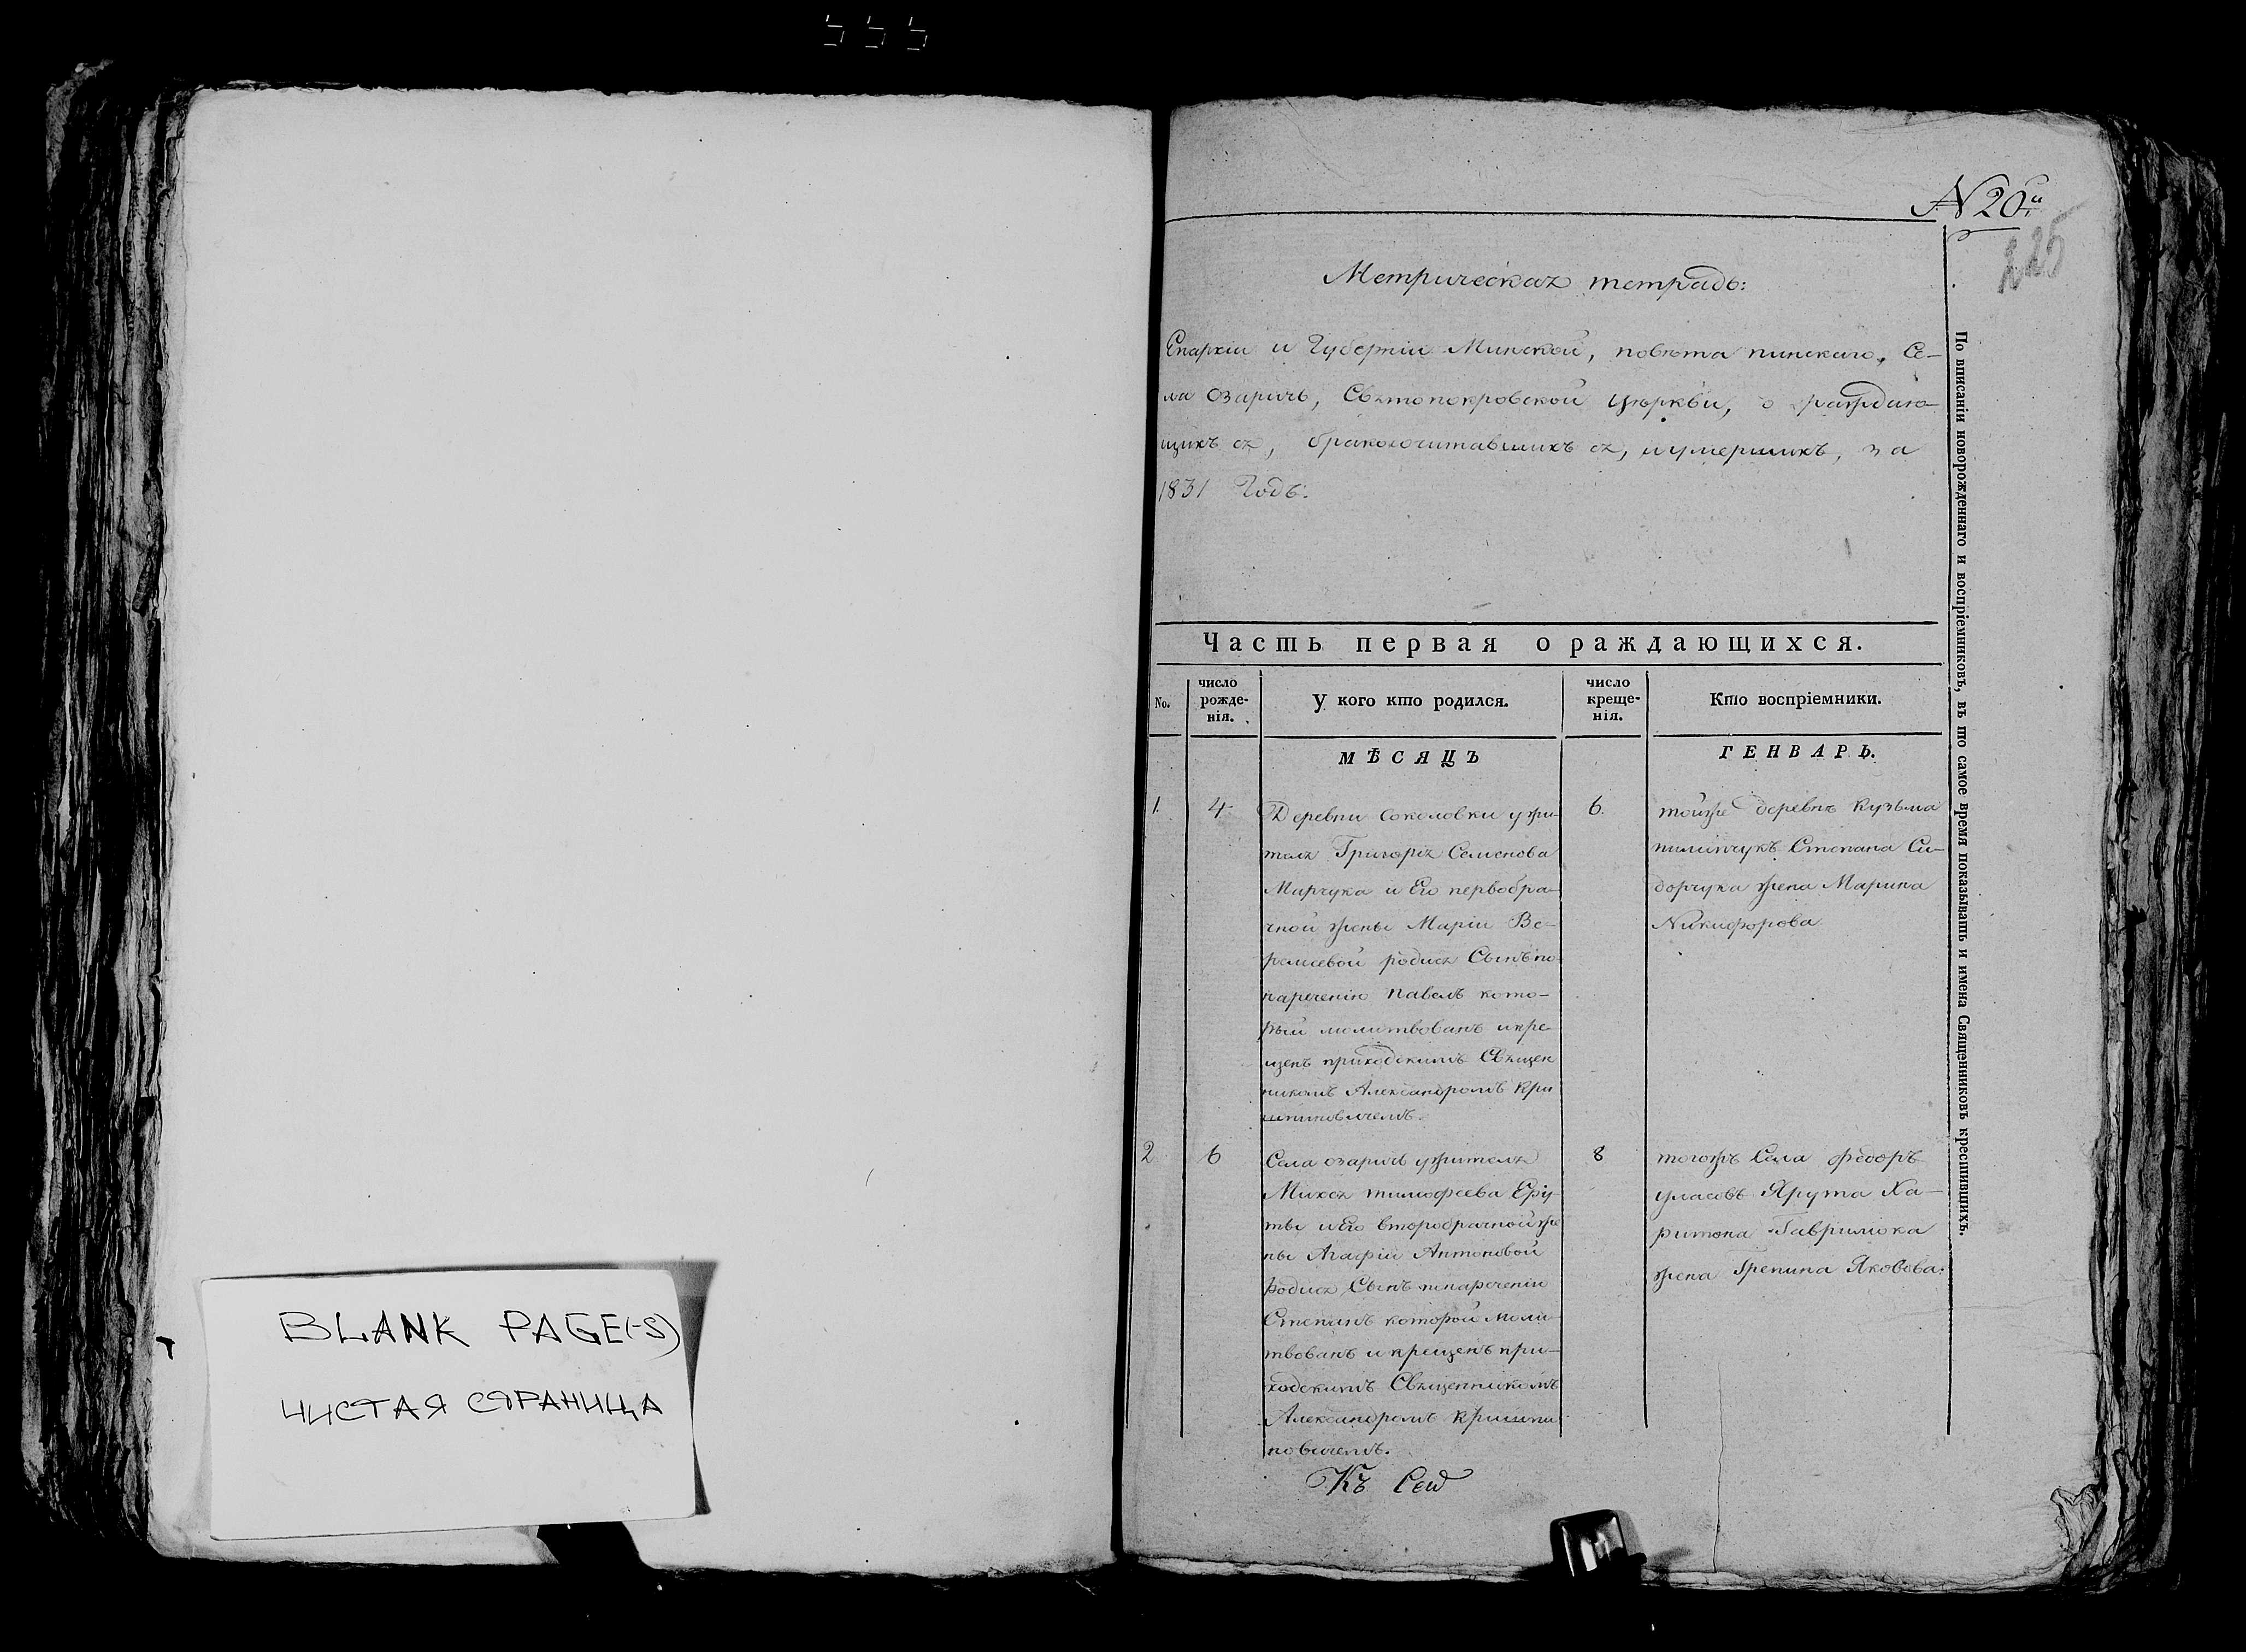 BLANK PAGE(-S)
ЧИСТАЯ СТРАНИЦА
N 20.й
225
Метрическая тетрадь:
Епархіи и Губерніи Минской, повѣта пинскаго, Се-
ла озаричъ, Святопокровской цѣркви, о раждаю-
щихъ ся, бракосочитавшихъ ся, и умершихъ, за
1831 Годъ.
Часть первая о раждающихся.
No.
число рожде-нія.
У кого кто родился.
число креще-нія.
Кто воспріемники.
МѢСЯЦЪ
ГЕНВАРЬ.
1.
4
Деревни соколовки у жи-
теля Григорія Семенова
Марчука и Его первобра-
чной жены Маріи Ве-
ремѣевой родися Сынъ по
нареченію павелъ кото-
рый молитвованъ и кре-
щенъ приходскимъ Священ
никомъ Александромъ Кри
шпиновичемъ.
6.
тойже деревнѣ Кузьма
пилипчукъ Степана Си-
дорчука жена Марина
Никифорова
2
6
Села озаричъ у жителя
Михея тимофеева Еру-
ты и Его второбрачной же
ны Агафіи Антоновой
родися Сынъ по наречении
Степанъ которой моли-
твованъ и крещенъ при-
ходскимъ Священникомъ
Александромъ Кришпи
новичемъ.
8
тогожъ Села федоръ
уласовъ Ярута Ха-
ритона Гаврилюка
жена Грепина Яковова.
Къ Сей
По вписаніи новорожденнаго и воспріемниковъ, въ то самое время показывать и имена Священниковъ крестившихъ.